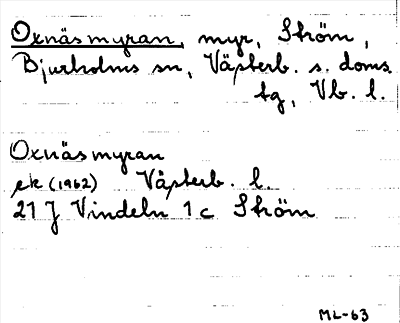 Oxnäsmyran, myr, Ström,
Bjurholms sn, Västerb. s. doms.
tg, Vb. l.
Oxnäsmyran
ek (1962) Västerb. l.
21 J Vindeln 1 c Ström
ML-63